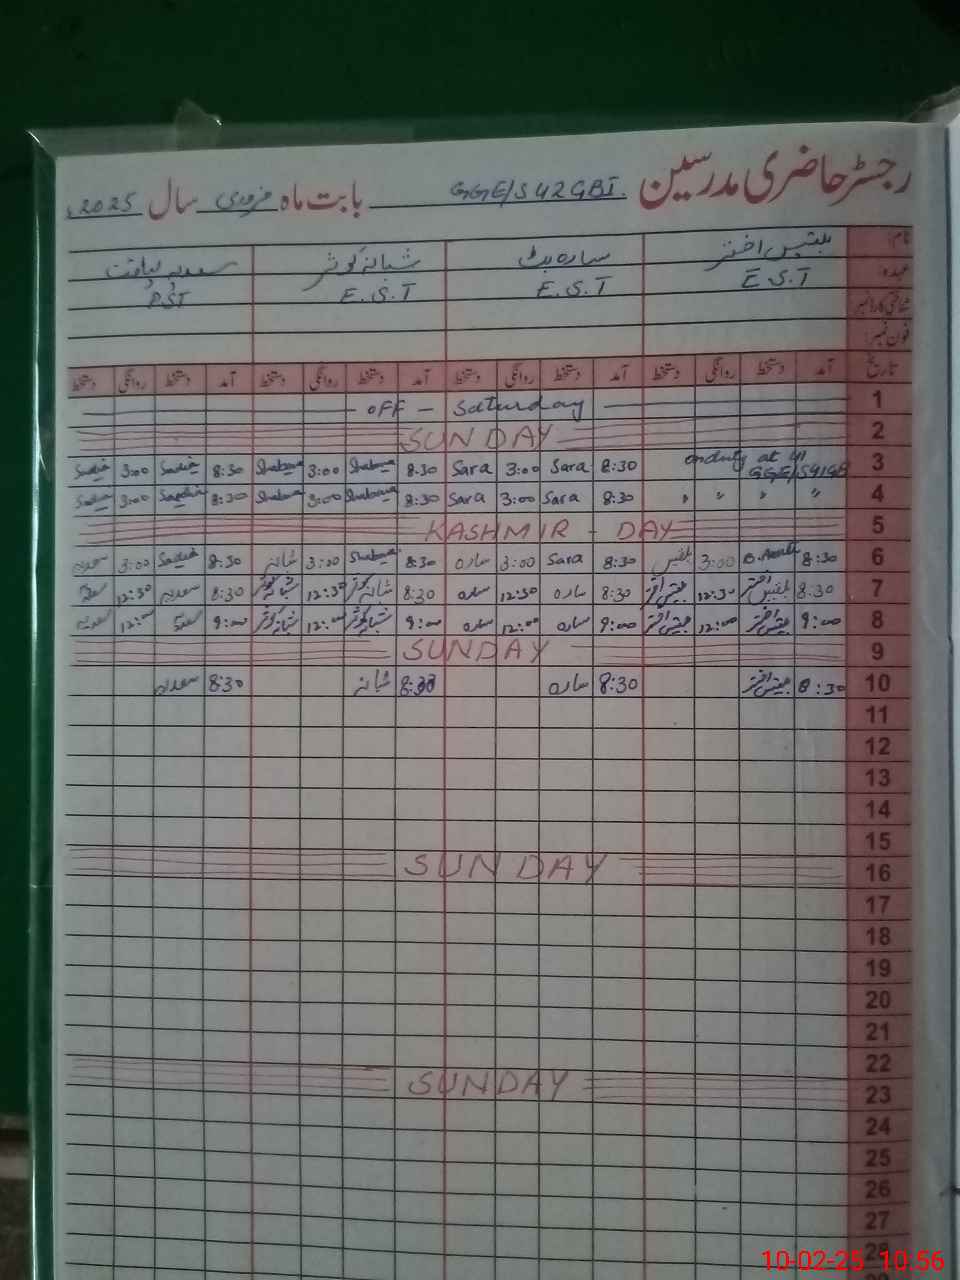 رجسٹر حاضری مدرسین GGE/S 42 GBI. بابت ماہ فروری سال 2025ء
نام: بلقیس اختر سارہ بٹ شبانہ کوثر سعدیہ لیاقت
عہدہ E.S.T E.S.T E.S.T P.S.T
شناختی کارڈ نمبر
فون نمبر:
تاریخ آمد دستخط روانگی دستخط آمد دستخط روانگی دستخط آمد دستخط روانگی دستخط آمد دستخط روانگی دستخط
1 OFF - Saturday
2 SUNDAY
3 onduty at GGE/S 41 GB 8:30 Sara 3:00 Sara 8:30 Shabana 3:00 Shabana 8:30 Sadia 3:00 Sadia
4 " " " " 8:30 Sara 3:00 Sara 8:30 Shabana 3:00 Shabana 8:30 Sadia 3:00 Sadia
5 KASHMIR - DAY
6 8:30 3:00 بلقیس 8:30 Sara 3:00 سارہ 8:30 Shabana 3:00 شبانہ 8:30 Sadia 3:00 سعدیہ
7 8:30 بلقیس اختر 12:30 بلقیس اختر 8:30 سارہ 12:30 سارہ 8:30 شبانہ کوثر 12:30 شبانہ کوثر 8:30 سعدیہ 12:30 سعدیہ
8 9:00 بلقیس اختر 12:00 بلقیس اختر 9:00 سارہ 12:00 سارہ 9:00 شبانہ کوثر 12:00 شبانہ کوثر 9:00 سعدیہ 12:00 سعدیہ
9 SUNDAY
10 8:30 بلقیس اختر 8:30 سارہ 8:30 شبانہ 8:30 سعدیہ
11
12
13
14
15
16 SUNDAY
17
18
19
20
21
22
23 SUNDAY
24
25
26
27
28
10-02-25 10:56